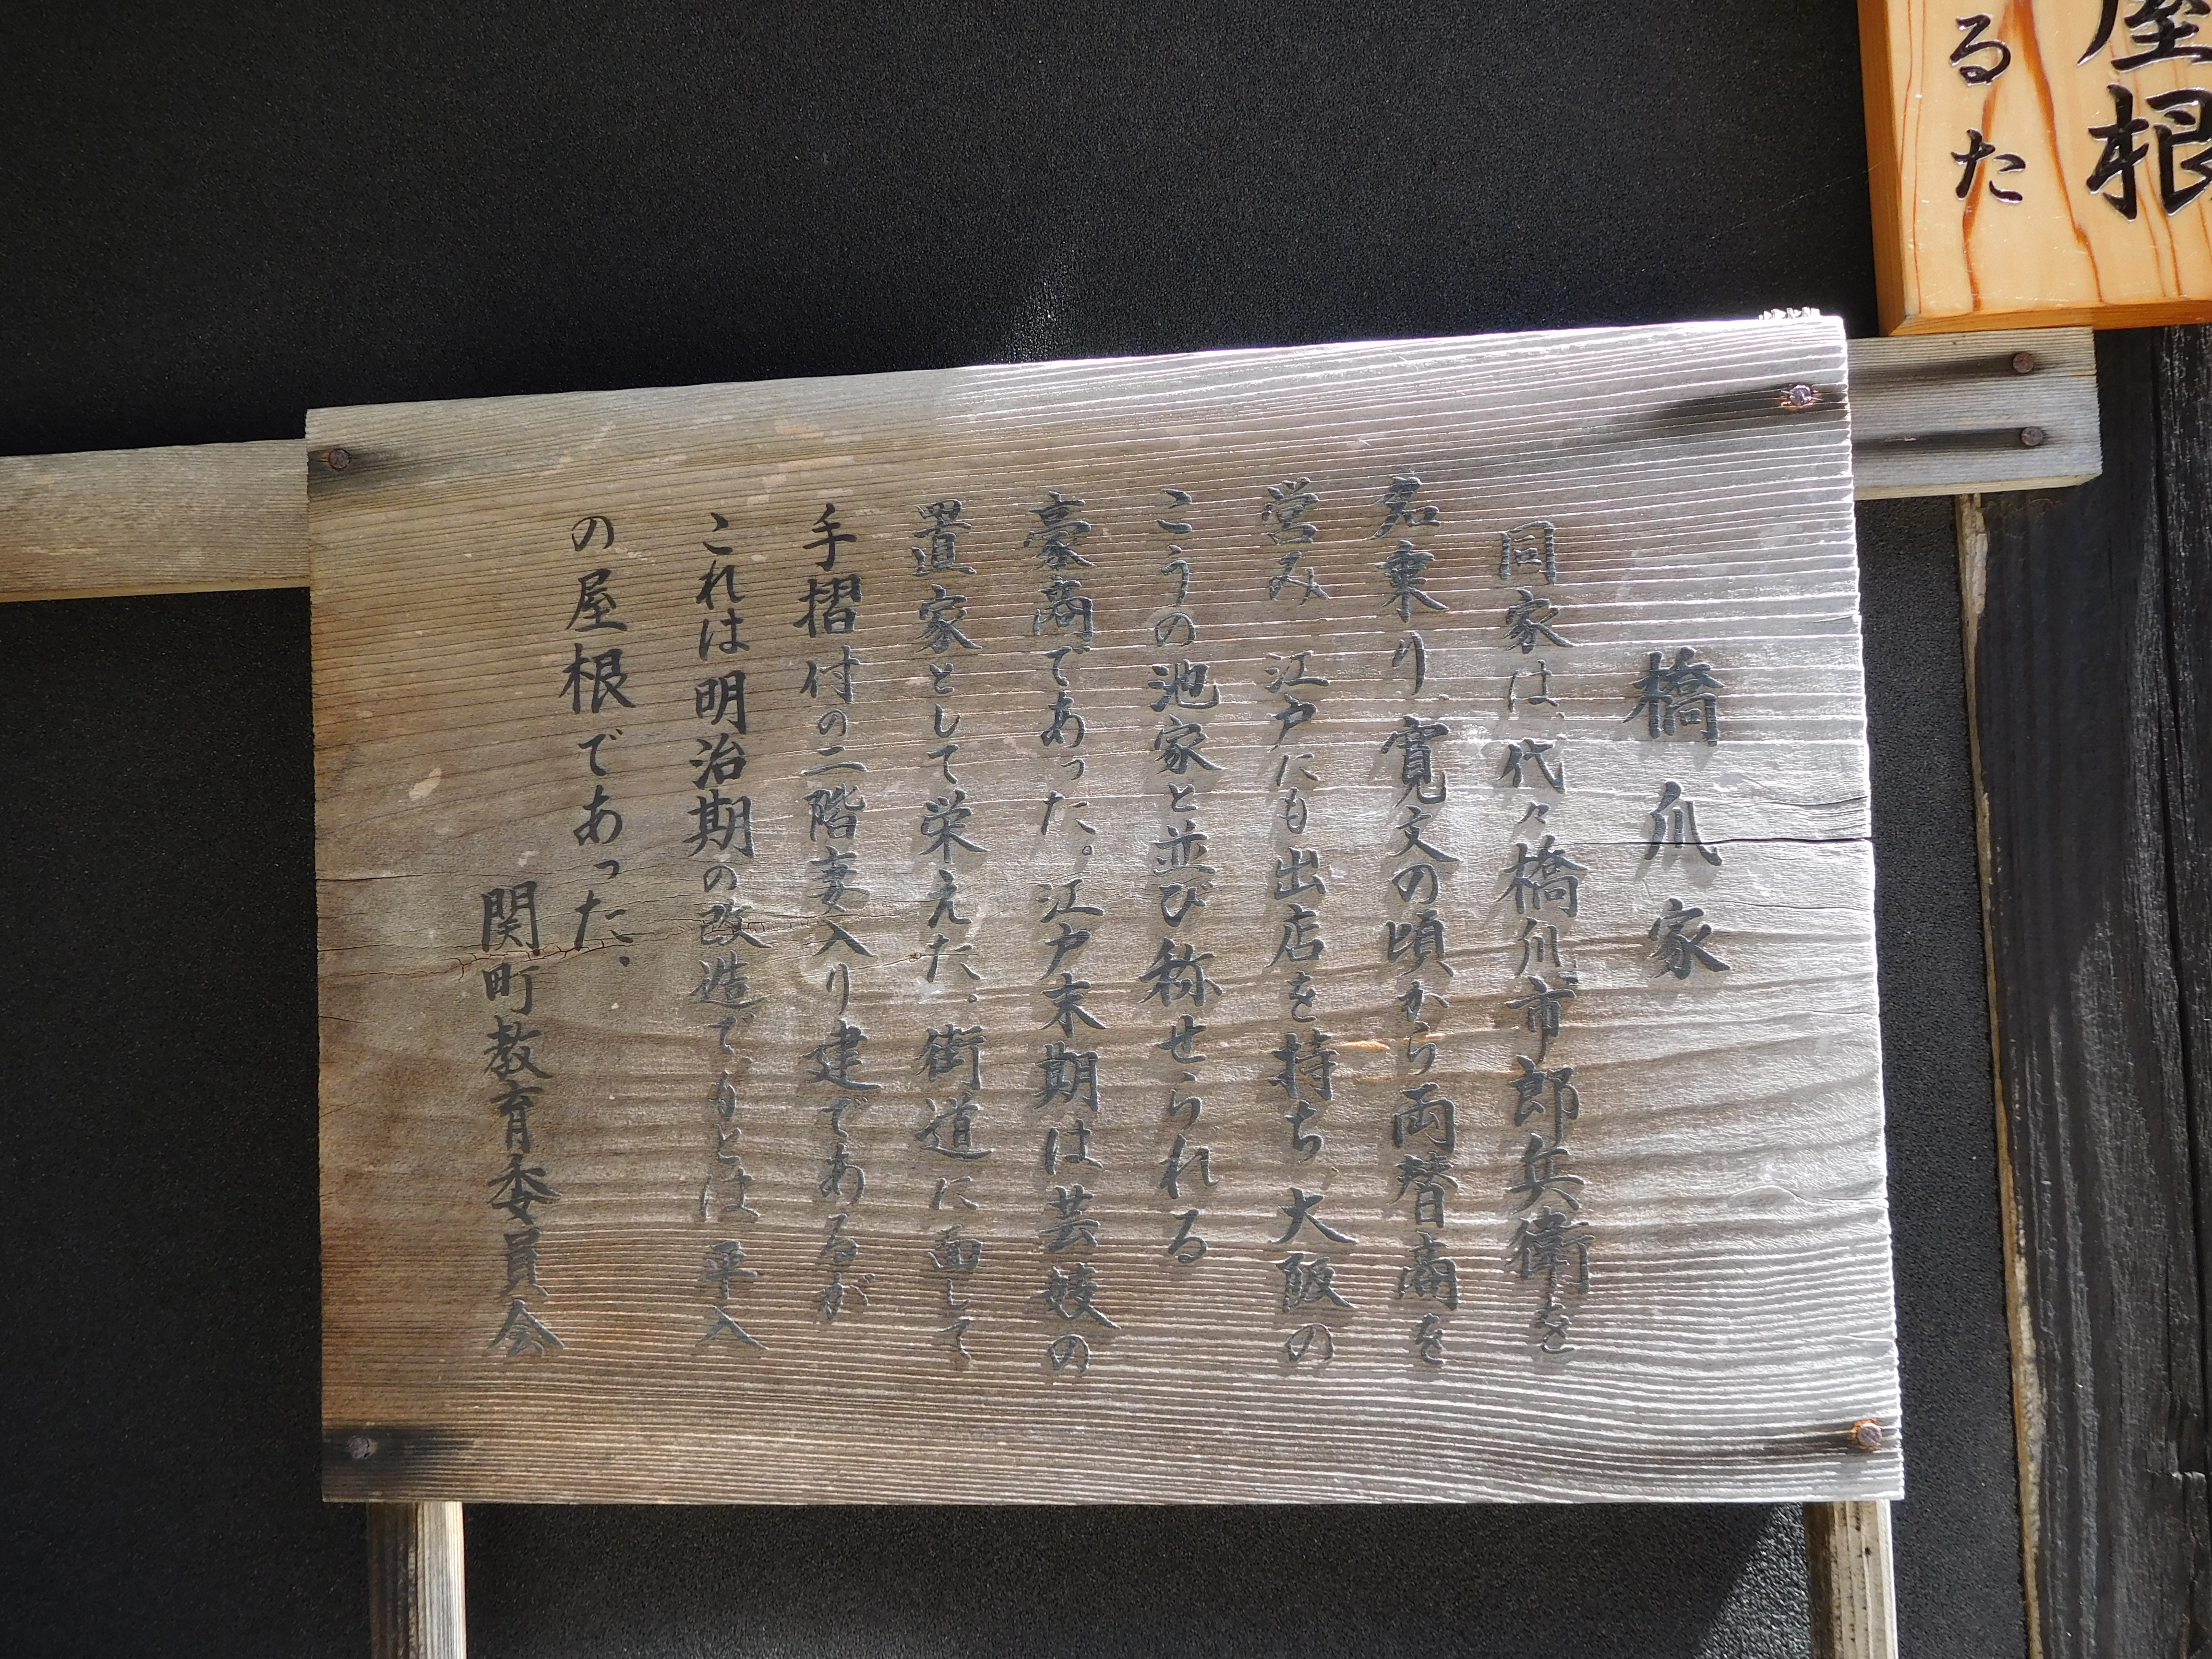 屋根
るた
橋爪家
同家は、代々橋爪市郎兵衛を
名乗り、寛文の頃から両替商を
営み、江戸にも出店を持ち、大阪の
こうの池家と並び称せられる
豪商であった。江戸末期は芸妓の
置家として栄えた。街道に面して
手摺付の二階妻入り建であるが
これは明治期の改造で、もとは、平入
の屋根であった。
関町教育委員会